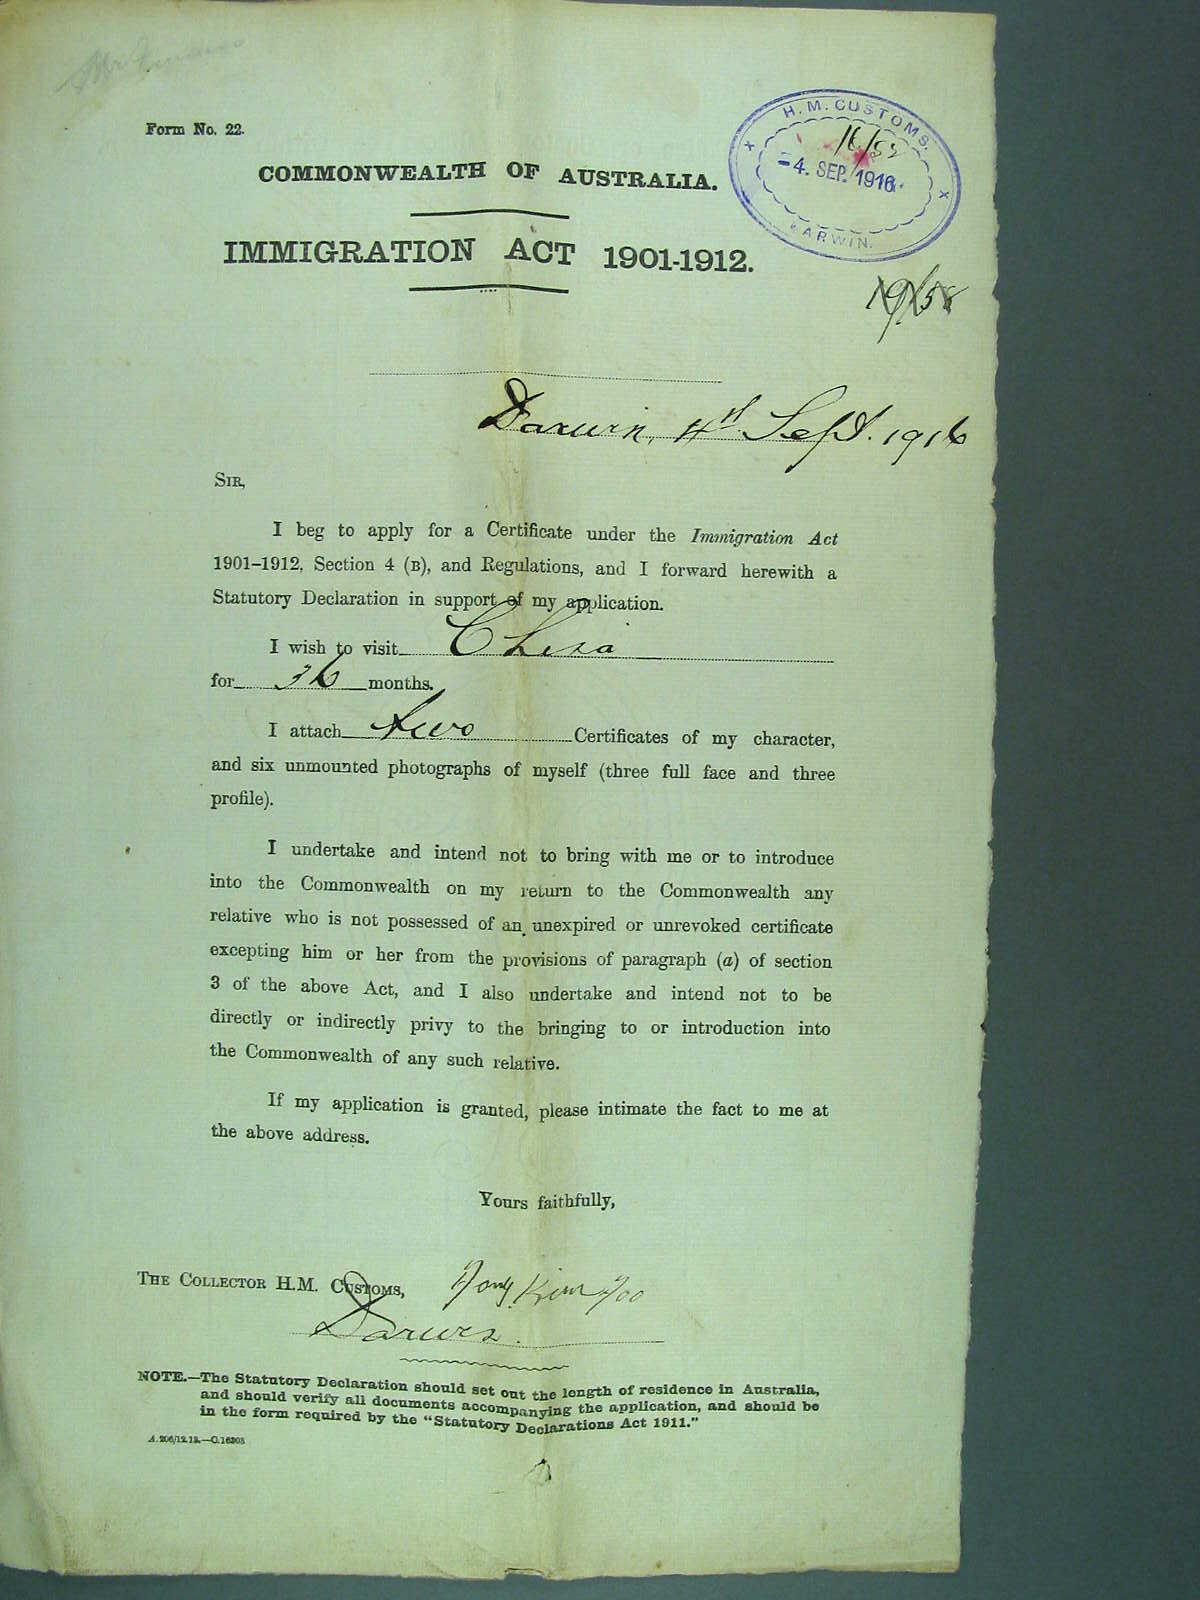 Form No. 22.
COMMONWEALTH OF AUSTRALIA.
IMMIGRATION ACT 1901-1912.
H. M. CUSTOMS.
16/58
-4. SEP. 1916
DARWIN.
19/58
Darwin, 4th Sept. 1916
SIR,
I beg to apply for a Certificate under the Immigration Act
1901-1912, Section 4 (B), and Regulations, and I forward herewith a
Statutory Declaration in support of my application.
I wish to visit China
for 36 months.
I attach two Certificates of my character,
and six unmounted photographs of myself (three full face and three
profile).
I undertake and intend not to bring with me or to introduce
into the Commonwealth on my return to the Commonwealth any
relative who is not possessed of an unexpired or unrevoked certificate
excepting him or her from the provisions of paragraph (a) of section
3 of the above Act, and I also undertake and intend not to be
directly or indirectly privy to the bringing to or introduction into
the Commonwealth of any such relative.
If my application is granted, please intimate the fact to me at
the above address.
Yours faithfully,
THE COLLECTOR H.M. CUSTOMS,
Kim
Darwin.
NOTE.—The Statutory Declaration should set out the length of residence in Australia,
and should verify all documents accompanying the application, and should be
in the form required by the "Statutory Declarations Act 1911."